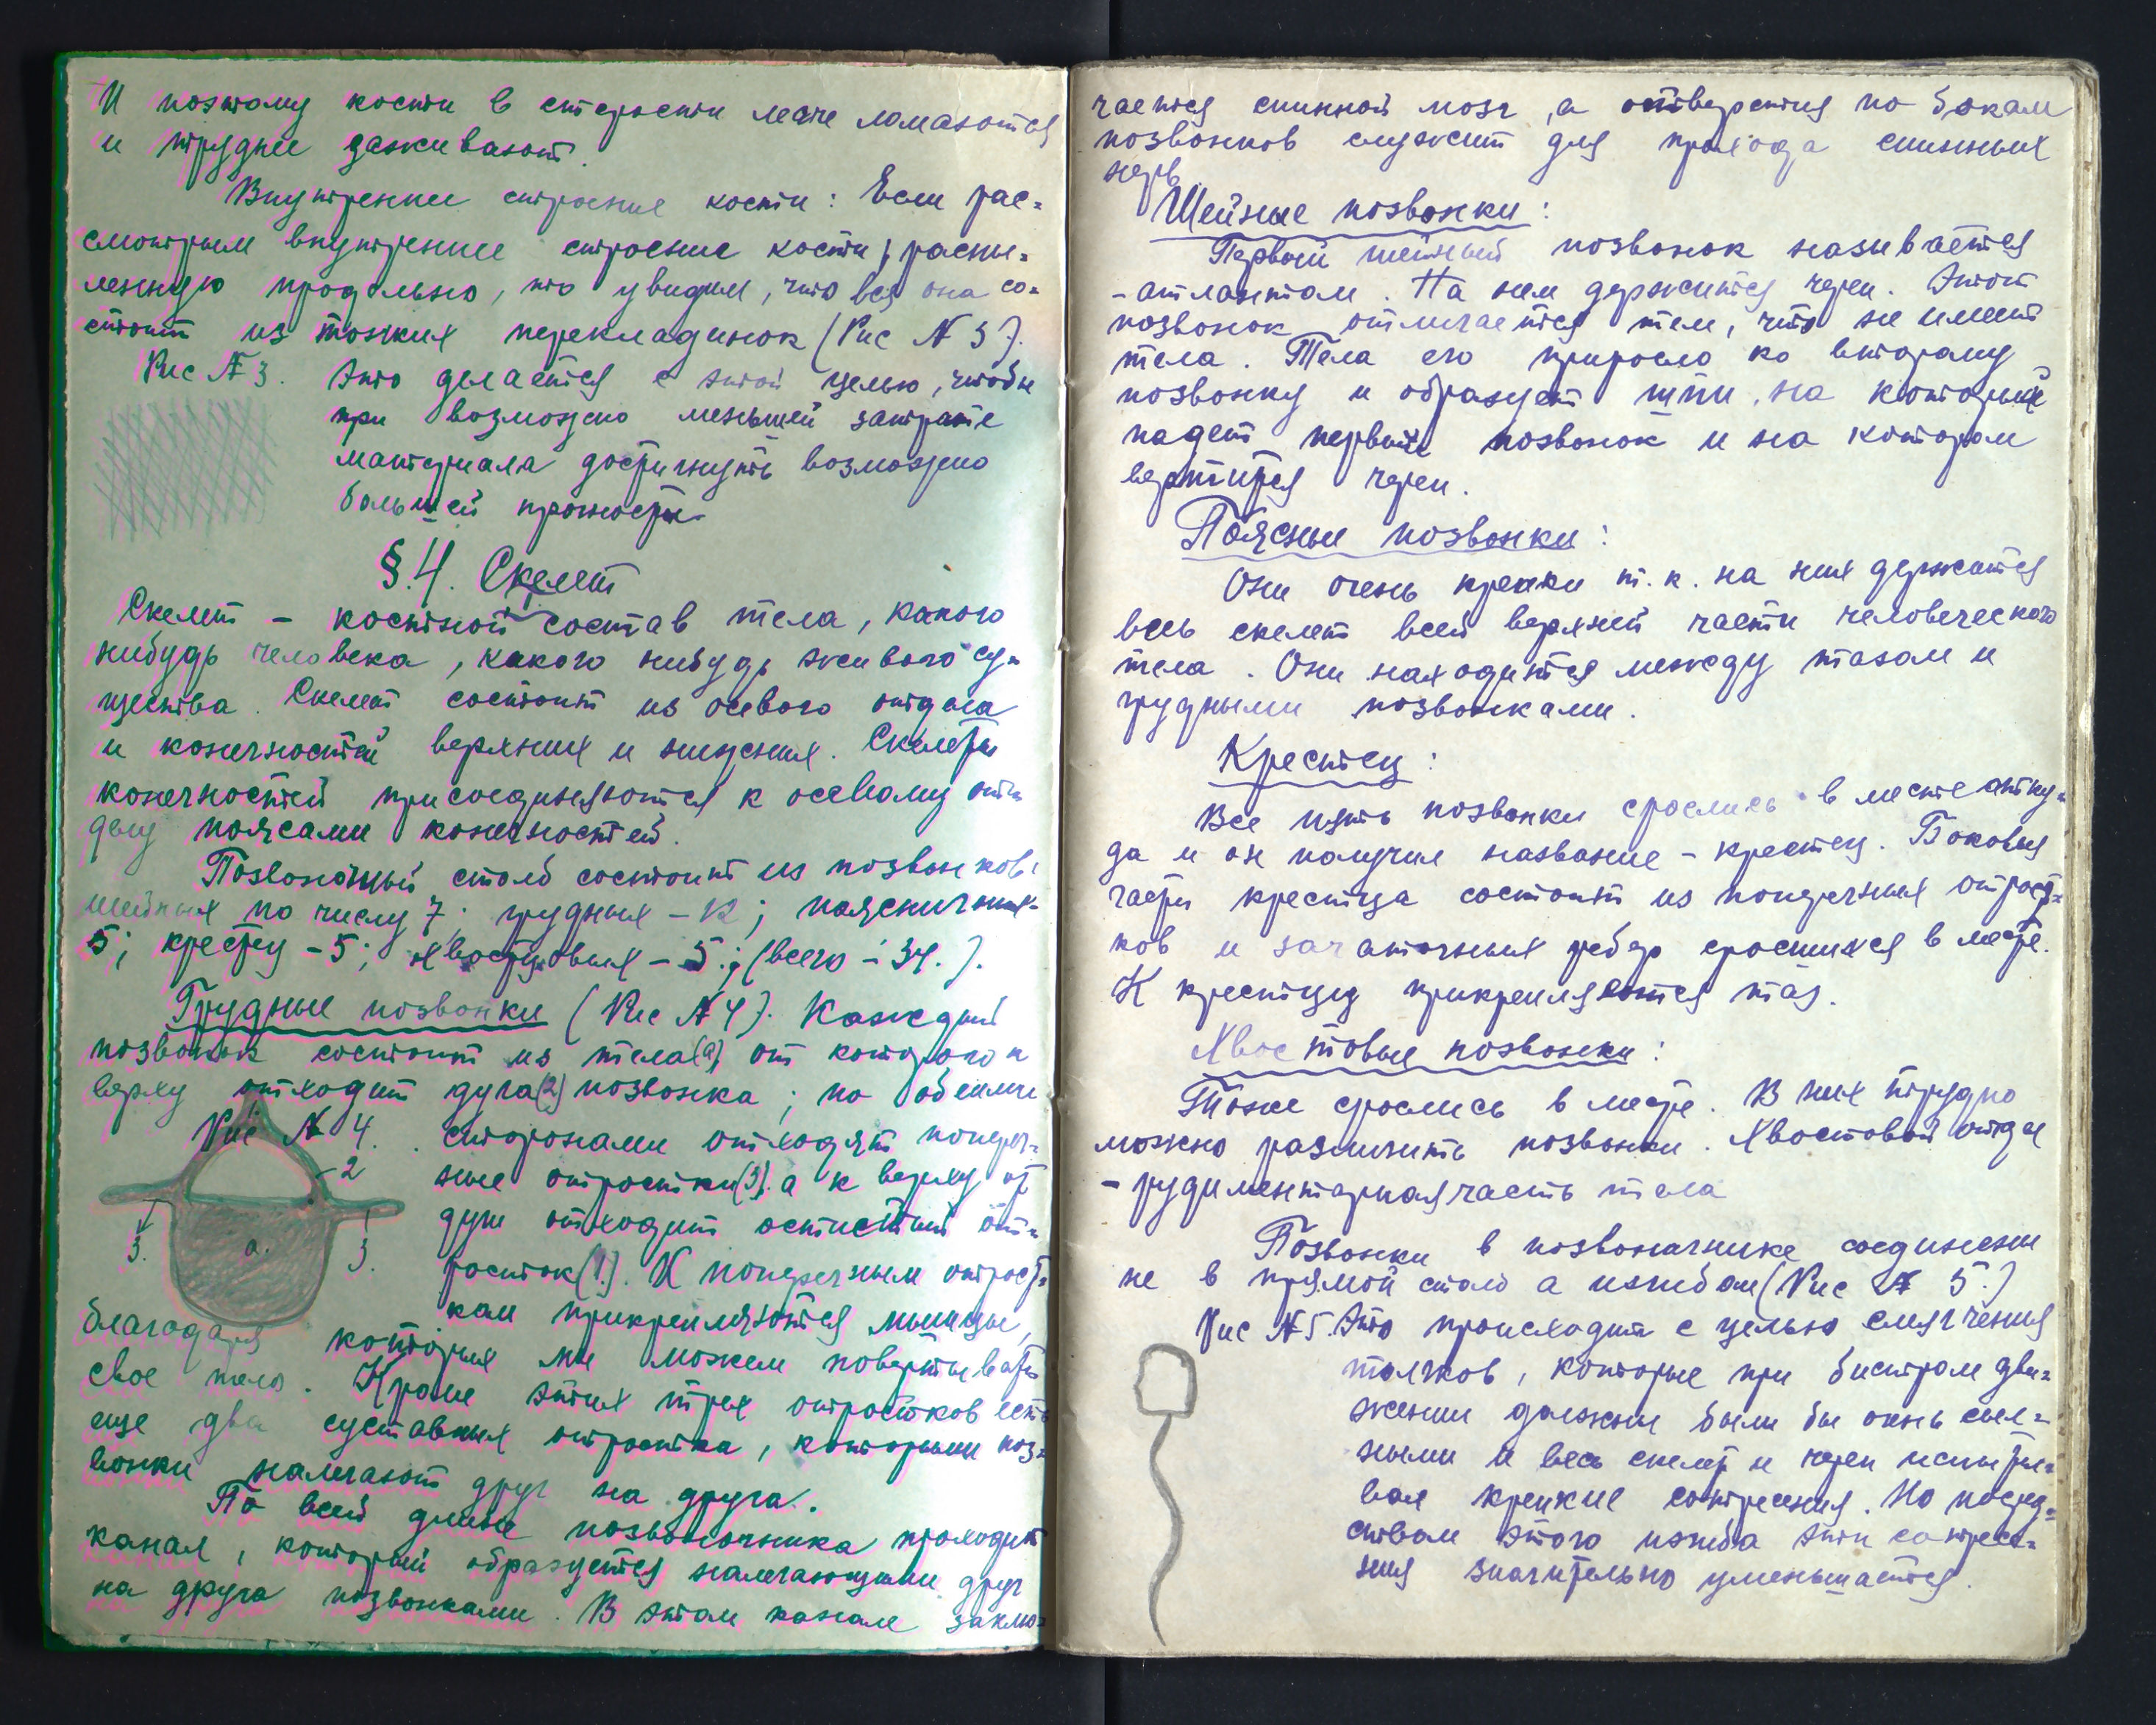 И поэтому кости в старости легче ломаются
и труднее заживают.
Внутренние строение кости: Если рас=
смотрим внутренние строение кости, распи=
ленную продольно, то увидим, что вся она со=
стоит из тонких перекладинок (Рис № 3).
Рис № 3. Это делается с этой целью, чтобы
при возможно меньшей затрате
материала достигнуть возможно
большей прочности.
§ 4. Скелет
Скелет – костной состав тела, какого
нибудь человека, какого нибудь живого су=
щества. Скелет состоит из осевого отдела
и конечностей верхних и нижних. Скелеты
конечностей присоединяются к осевому от=
делу поясами конечностей.
Позвоночный столб состоит из позвонков:
шейных по числу 7; грудных – 12; поясничных –
5; крестц – 5; хвостцовых – 5; (всего – 34.).
Грудные позвонки (Рис № 4). Каждый
позвонок состоит из тела(а) от которого к
верху отходит дуга(2) позвонка; по обеими
Рис № 4. сторонами отходят попереч=
2
ные отростки(3). а к верху от
дуги отходит остистый от=
3. а. 3.
росток(1). К поперечным отрост=
кам прикрепляются мышцы,
благодаря которых мы можем повертывать
свое тело. Кроме этих трех отростков есть
еще два суставных отростка, которыми поз=
вонки налегают друг на друга.
По всей длине позвоночника проходит
канал, который образуется налегающими друг
на друга позвонками. В этом канале заклю=
чается спинной мозг, а отверстия по бокам
позвонков служит для прохода спинных
нерв.
Шейные позвонки:
Первый шейный позвонок называется
– атлантом. На нем держится череп. Этот
позвонок отличается тем, что не имеет
тела. Тела его приросло ко второму
позвонку и образует шип, на который
надет первый позвонок и на котором
вертится череп.
Поясные позвонки:
Они очень крепки т.к. на них держатся
весь скелет всей верхней части человеческого
тела. Они находится между тазом и
грудными позвонками.
Крестец:
Все пять позвонки срослись в месте отку=
да и он получил название – крестец. Боковыя
части крестца состоит из поперечных отрост=
ков и зачаточных ребер сросшихся в месте.
К крестцу прикрепляются таз.
Хвостовые позвонки:
Тоже срослись в месте. В них трудно
можно различить позвонки. Хвостовой отдел
– рудиментарная часть тела
Позвонки в позвоночнике соединены
не в прямой столб а изгибом (Рис № 5.)
Рис № 5. Это происходит с целью смягчения
толчков, которые при быстром дви=
жении должны были бы очень силь=
ными и весь скелет и череп испыты=
вал крепкие сотресения. Но посред=
ством этого изгиба эти сотресе=
ния значительно уменьшается.